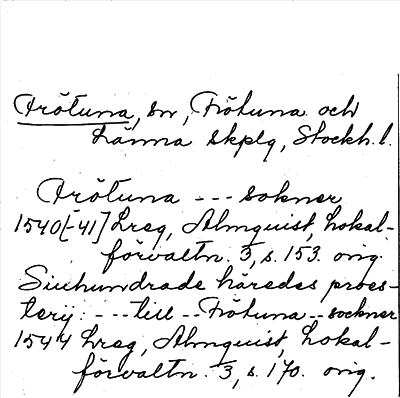 Frötuna, sn, Frötuna och
Länna skplg, Stockh. l.
Frötuna --- sokner
1540[-41] Lreg, Almquist, Lokal-
förvaltn. 3, s. 153. orig.
Siuhundrade häredes proes-
terij: --- till -- Frötuna -- sockner
1544 Lreg, Almquist, Lokal-
förvaltn. 3, s. 170. orig.